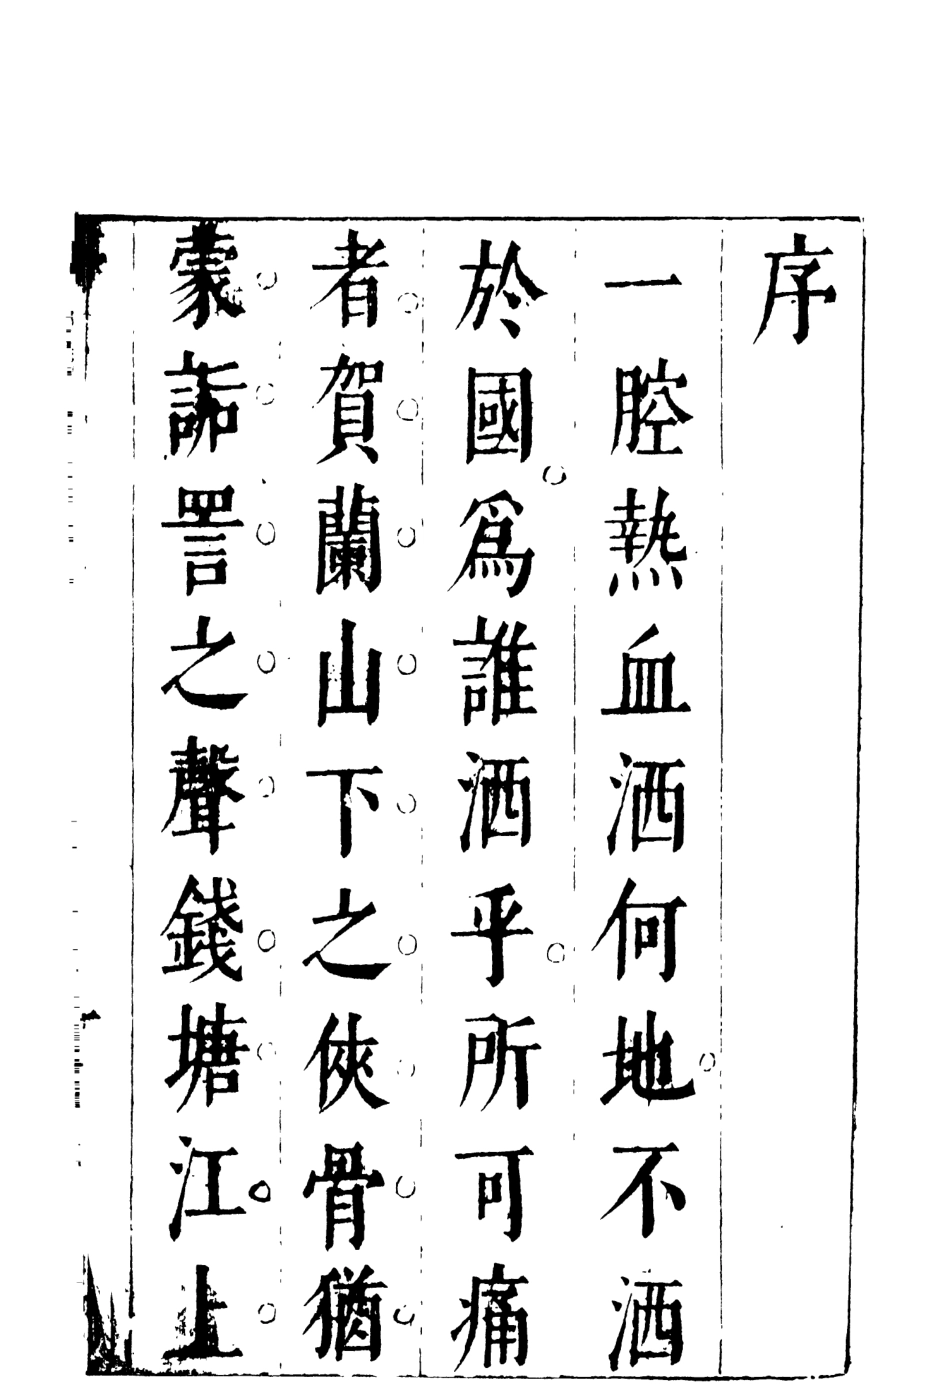 序
一腔熱血洒何地不洒
於國爲誰洒乎所可痛
者賀蘭山下之俠骨猶
蒙詬詈之聲錢塘江上